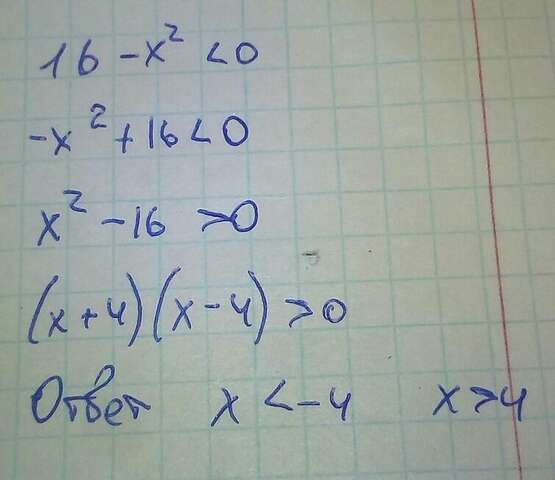 16 - x² < 0
-x² + 16 < 0
x² - 16 > 0
(x + 4)(x - 4) > 0
Ответ x < -4 x > 4